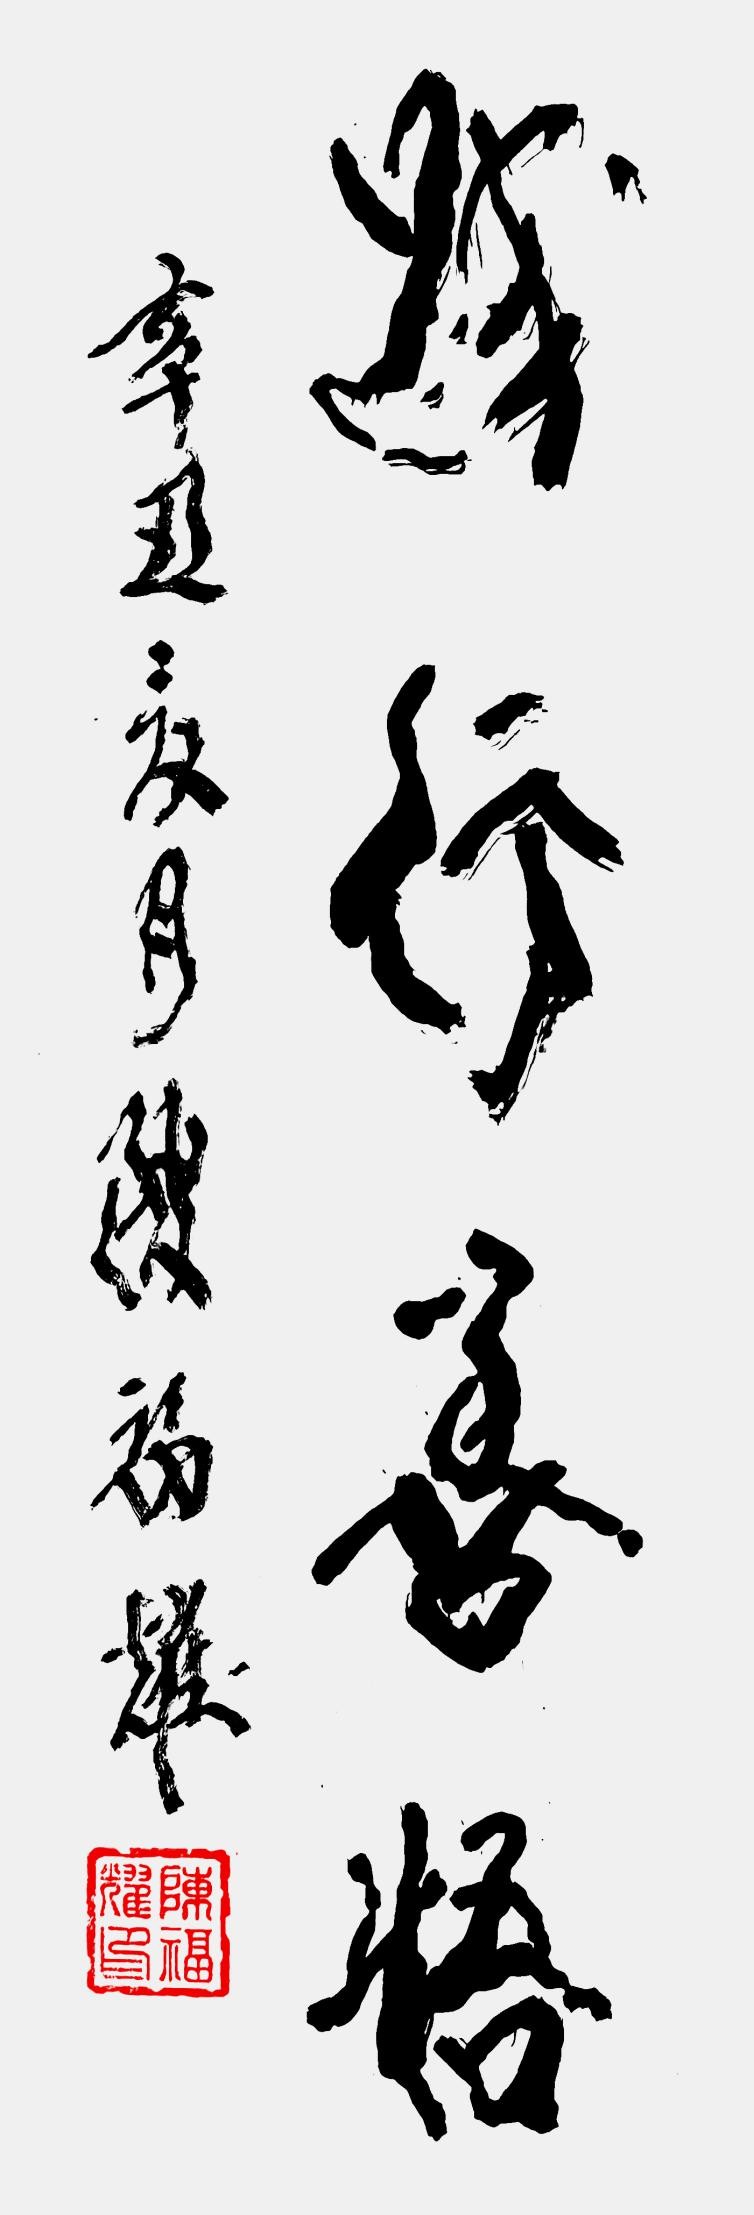 踐行善悟
辛丑夏月陳福耀
陳福
耀印